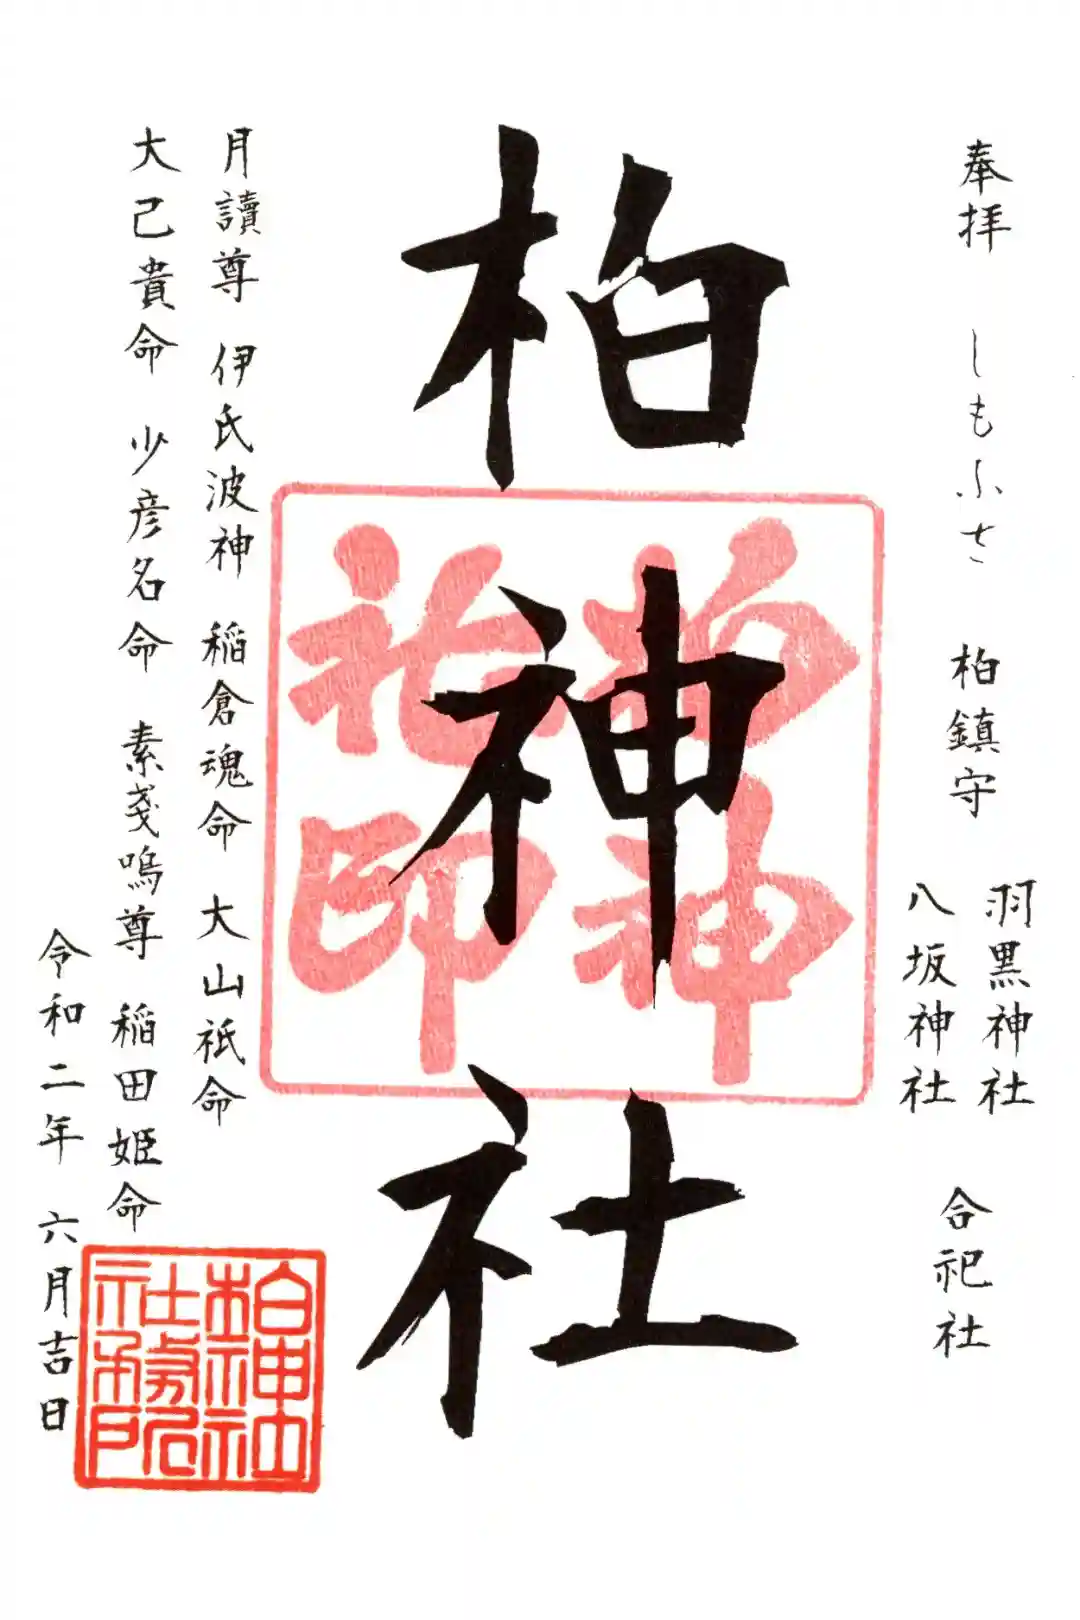 奉拝 しもふさ 柏鎮守
羽黒神社
八坂神社
合祀社
柏神社
柏神社印
月讀尊 伊氏波神 稲倉魂命 大山祇命
大己貴命 少彦名命 素戔嗚尊 稲田姫命
令和二年 六月吉日
柏神社
社務所